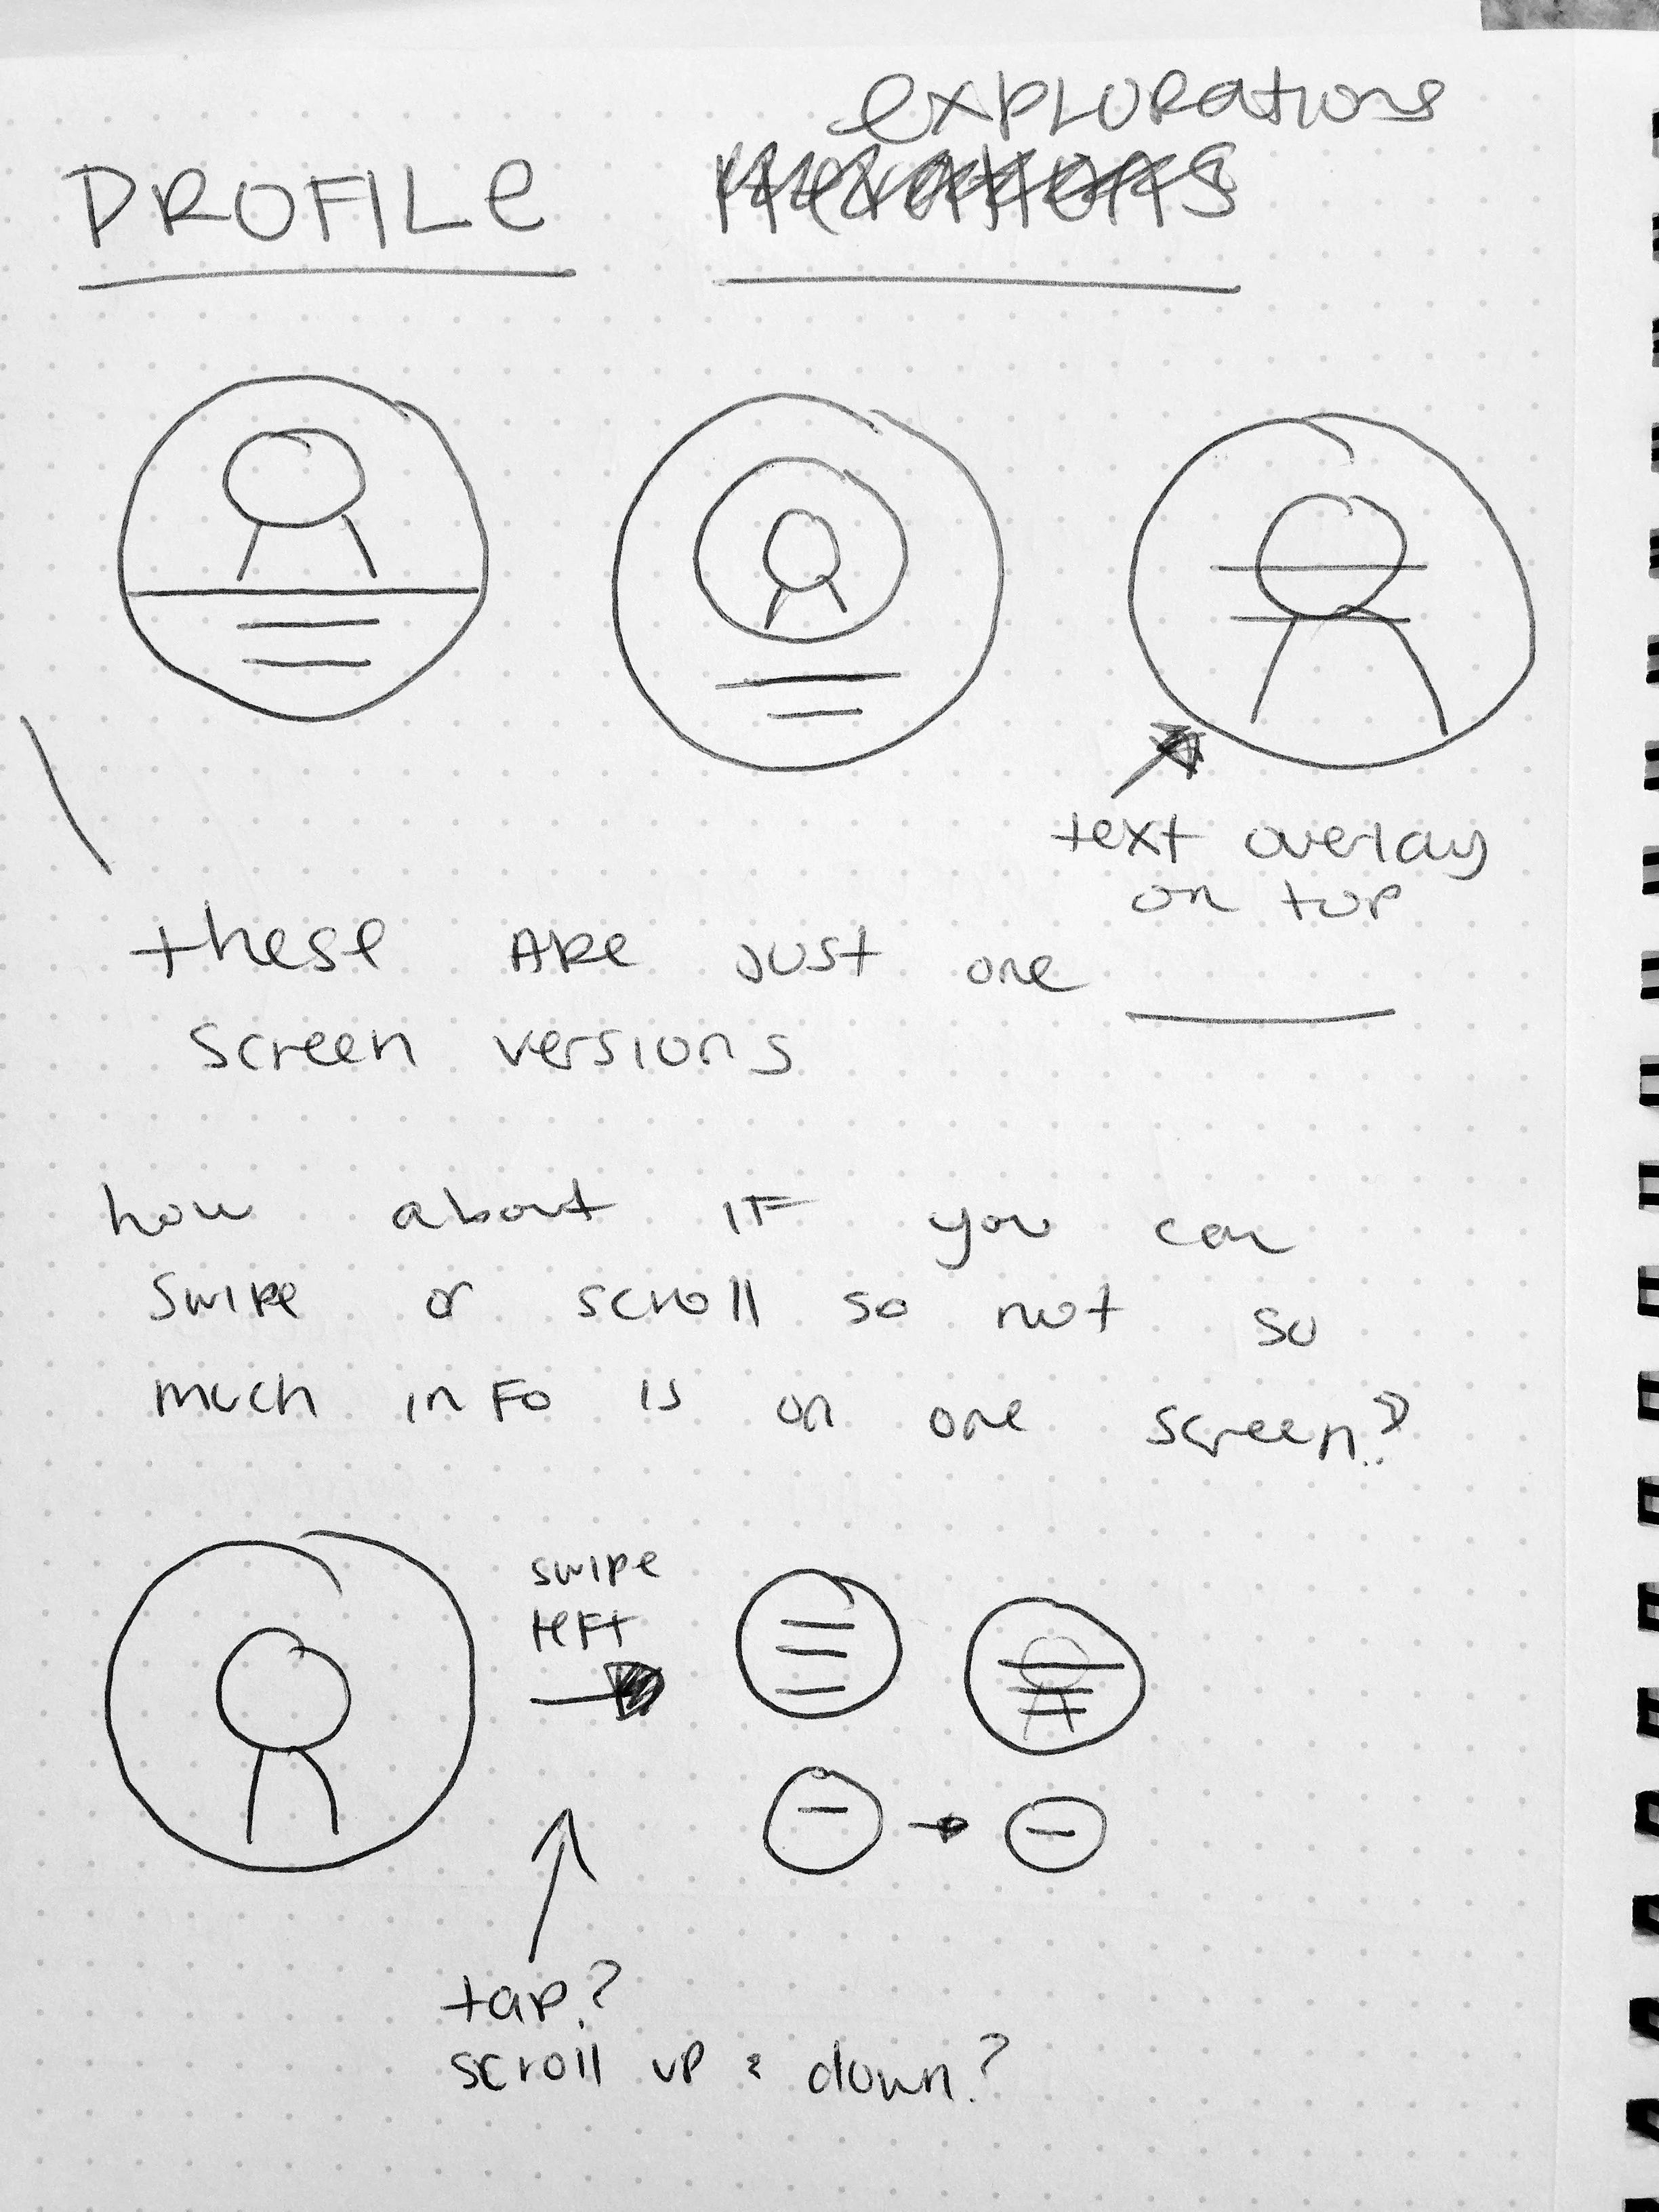 explorations
PROFILE iterations
text overlay
on top
these are just one
screen versions
how about if you can
swipe or scroll so not so
much info is on one screen?
swipe
left
tap?
scroll up & down?